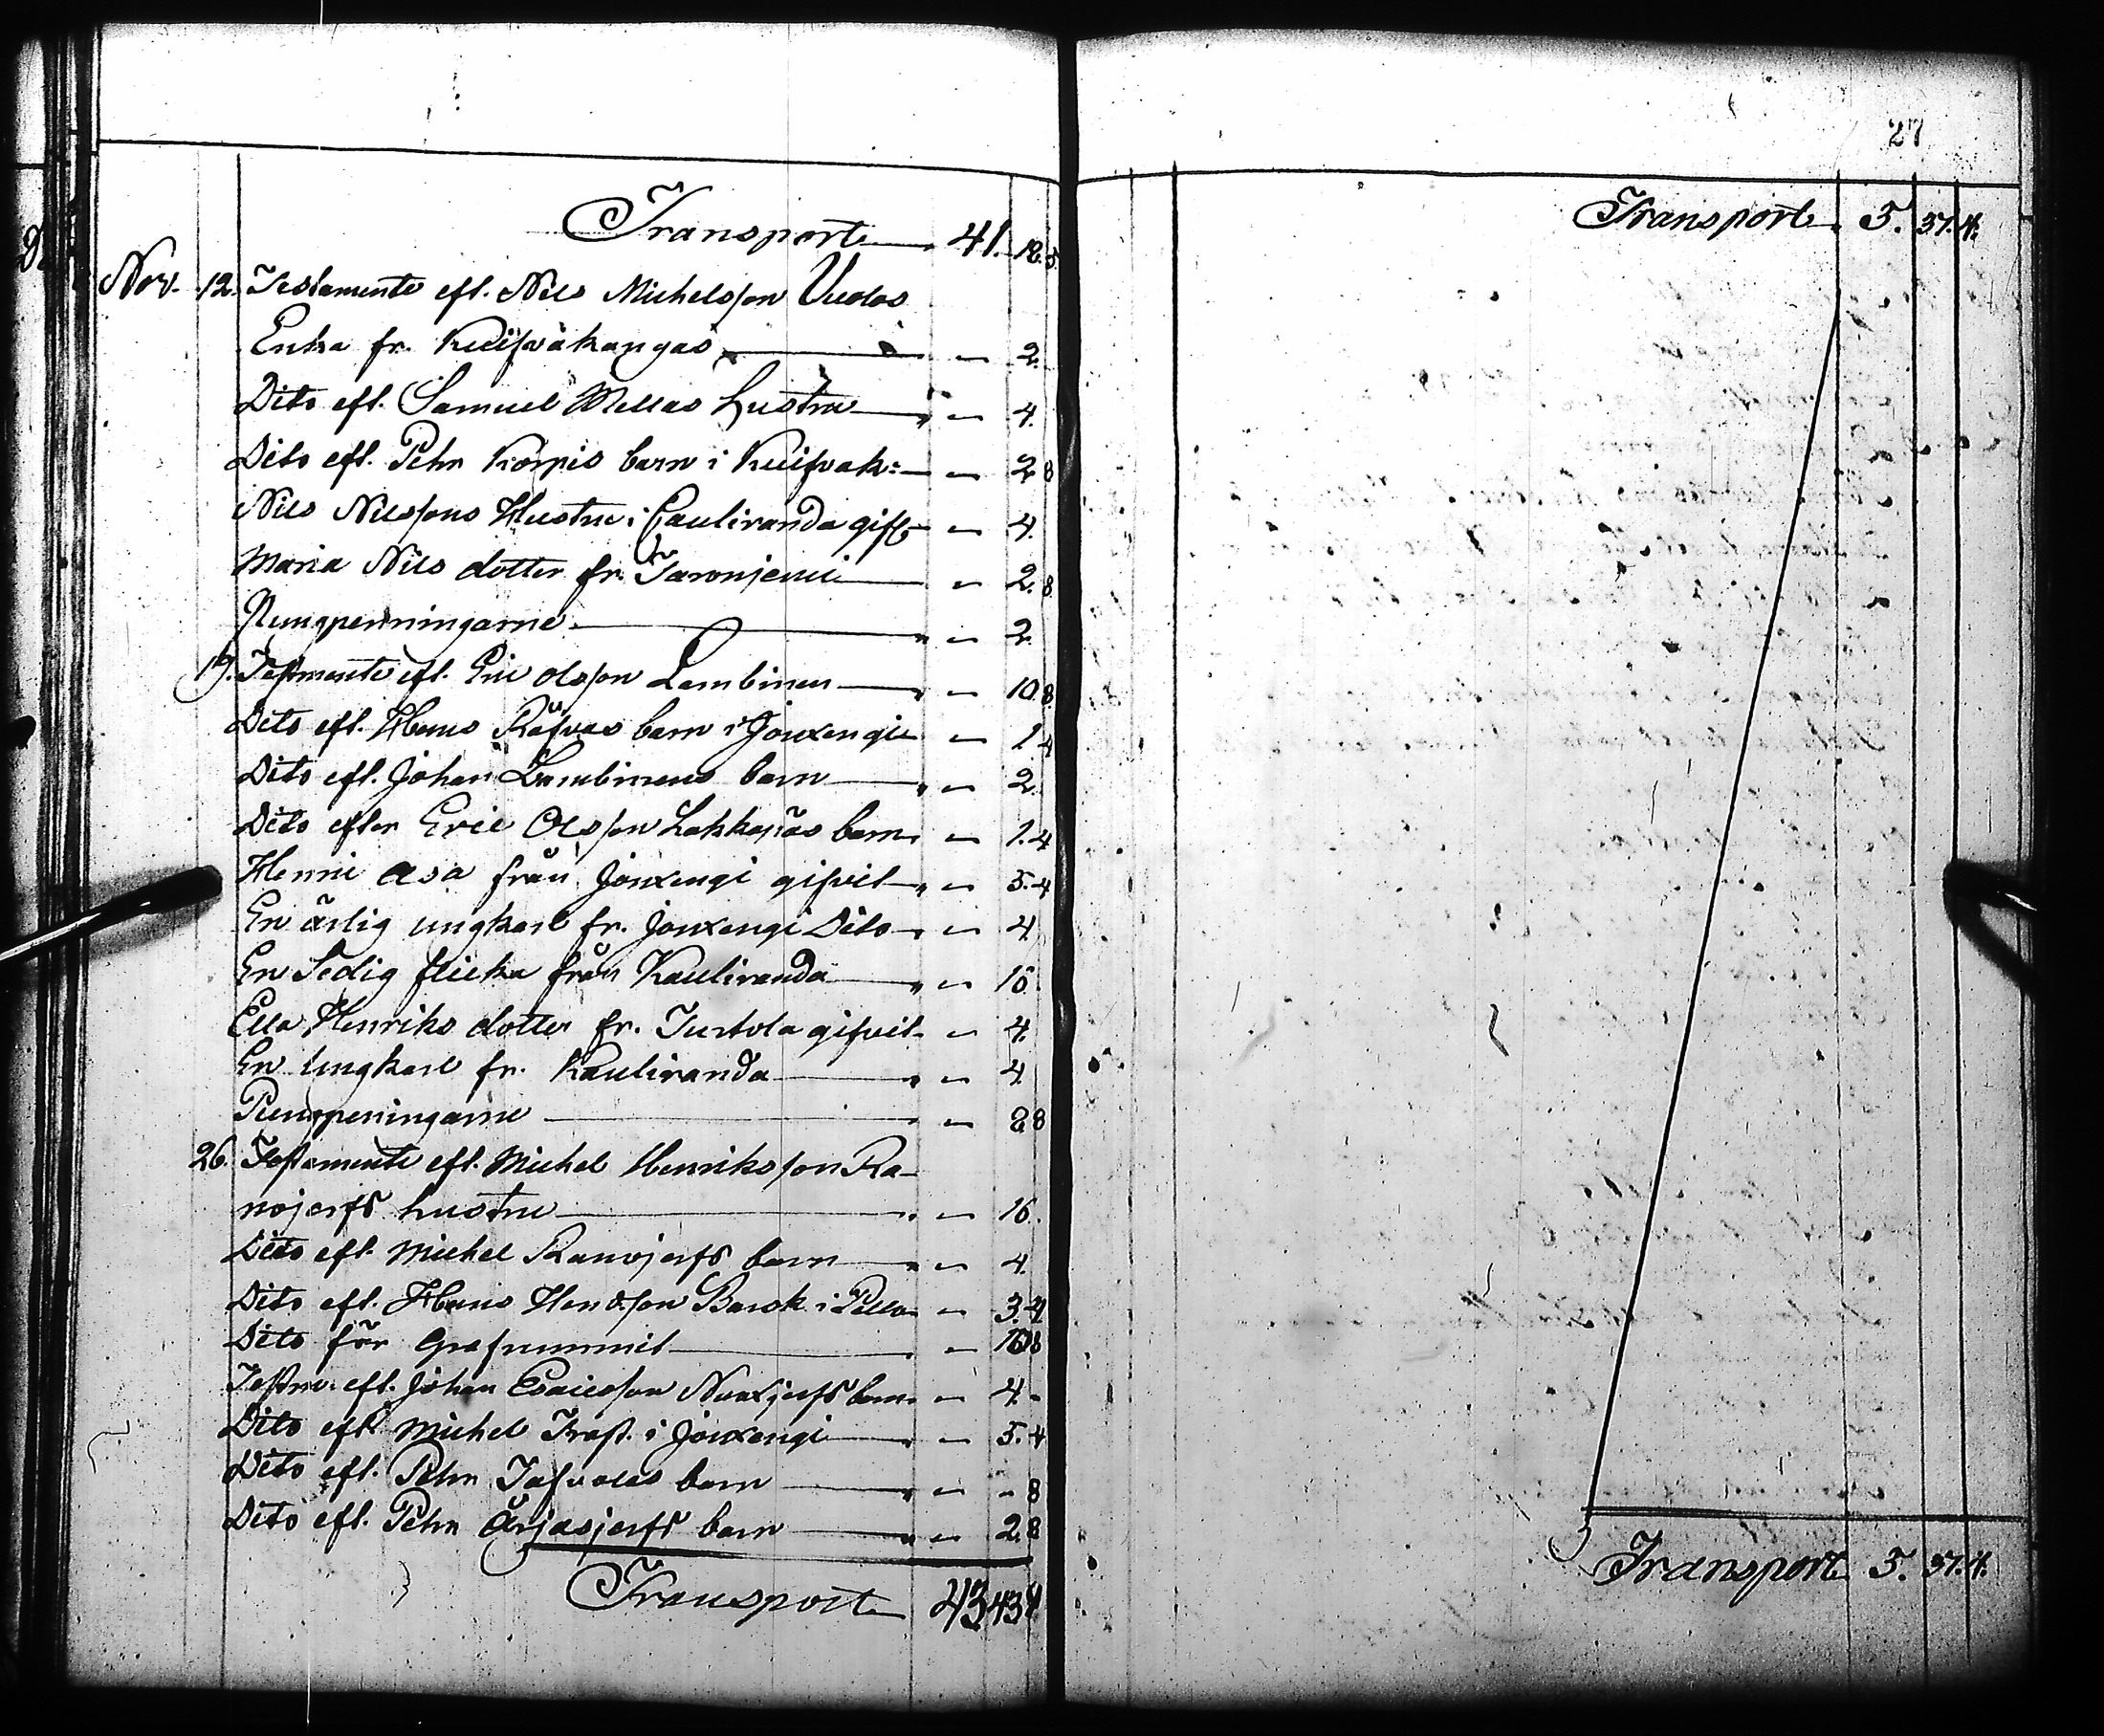 Transport 41. 12. 5.
Nov. 12. Testamente eft. Nils Michelsson Vuolos
Enka fr. Kuifvakangas " 2.
Dito eft. Samuel Mellas hustru " " 4.
Dito eft. Pehr Korpis barn i Kuifvak: " 2 8
Nils Nilssons Hustru i Kauliranda gift " 4.
Maria Nils dotter fr. Jaronjemi " 2. 8.
Pungpenningarne " " 2.
19. Testmente eft. Eric Olsson Lambinen " " 10 8
Dito eft. Hans Räfvas barn i Jouxengi " 1 4
Dito eft. Johan Lambinens barn " " 2.
Dito efter Eric Olsson Lakkapäs barn " 1. 4
Henric Asa från Jouxengi gifvit " " 5. 4
En ärlig ungkarl fr. Jouxengi Dito " " 4.
En Sedig flicka från Kauliranda " " 16.
Ella Henriks dotter fr. Turtola gifvit " 4.
En Ungkarl fr. Kauliranda " " 4.
Pungpeningarne " " 2 8
26. Testamente eft. Michel Henriksson Ra-
nojerfs hustru " " 16.
Dito eft. Michel Ranojerfs barn " " 4.
Dito eft. Hans Hendsson Barck i Pello " 3. 4.
Dito för Grafrummit " 16 8
Testm. eft. Johan Esaiesson Nuoxjerfs barn " 4. -
Dito eft. Michel Krast. i Jouxengi " " 5. 4
Dito eft. Pehr Jafvolas barn " " - 8
Dito eft. Pehr Ärjasjerfs barn " " 2. 8
Transport 43 43 4.
27
Transport 5. 37. 4.
Transport 5. 37. 4.